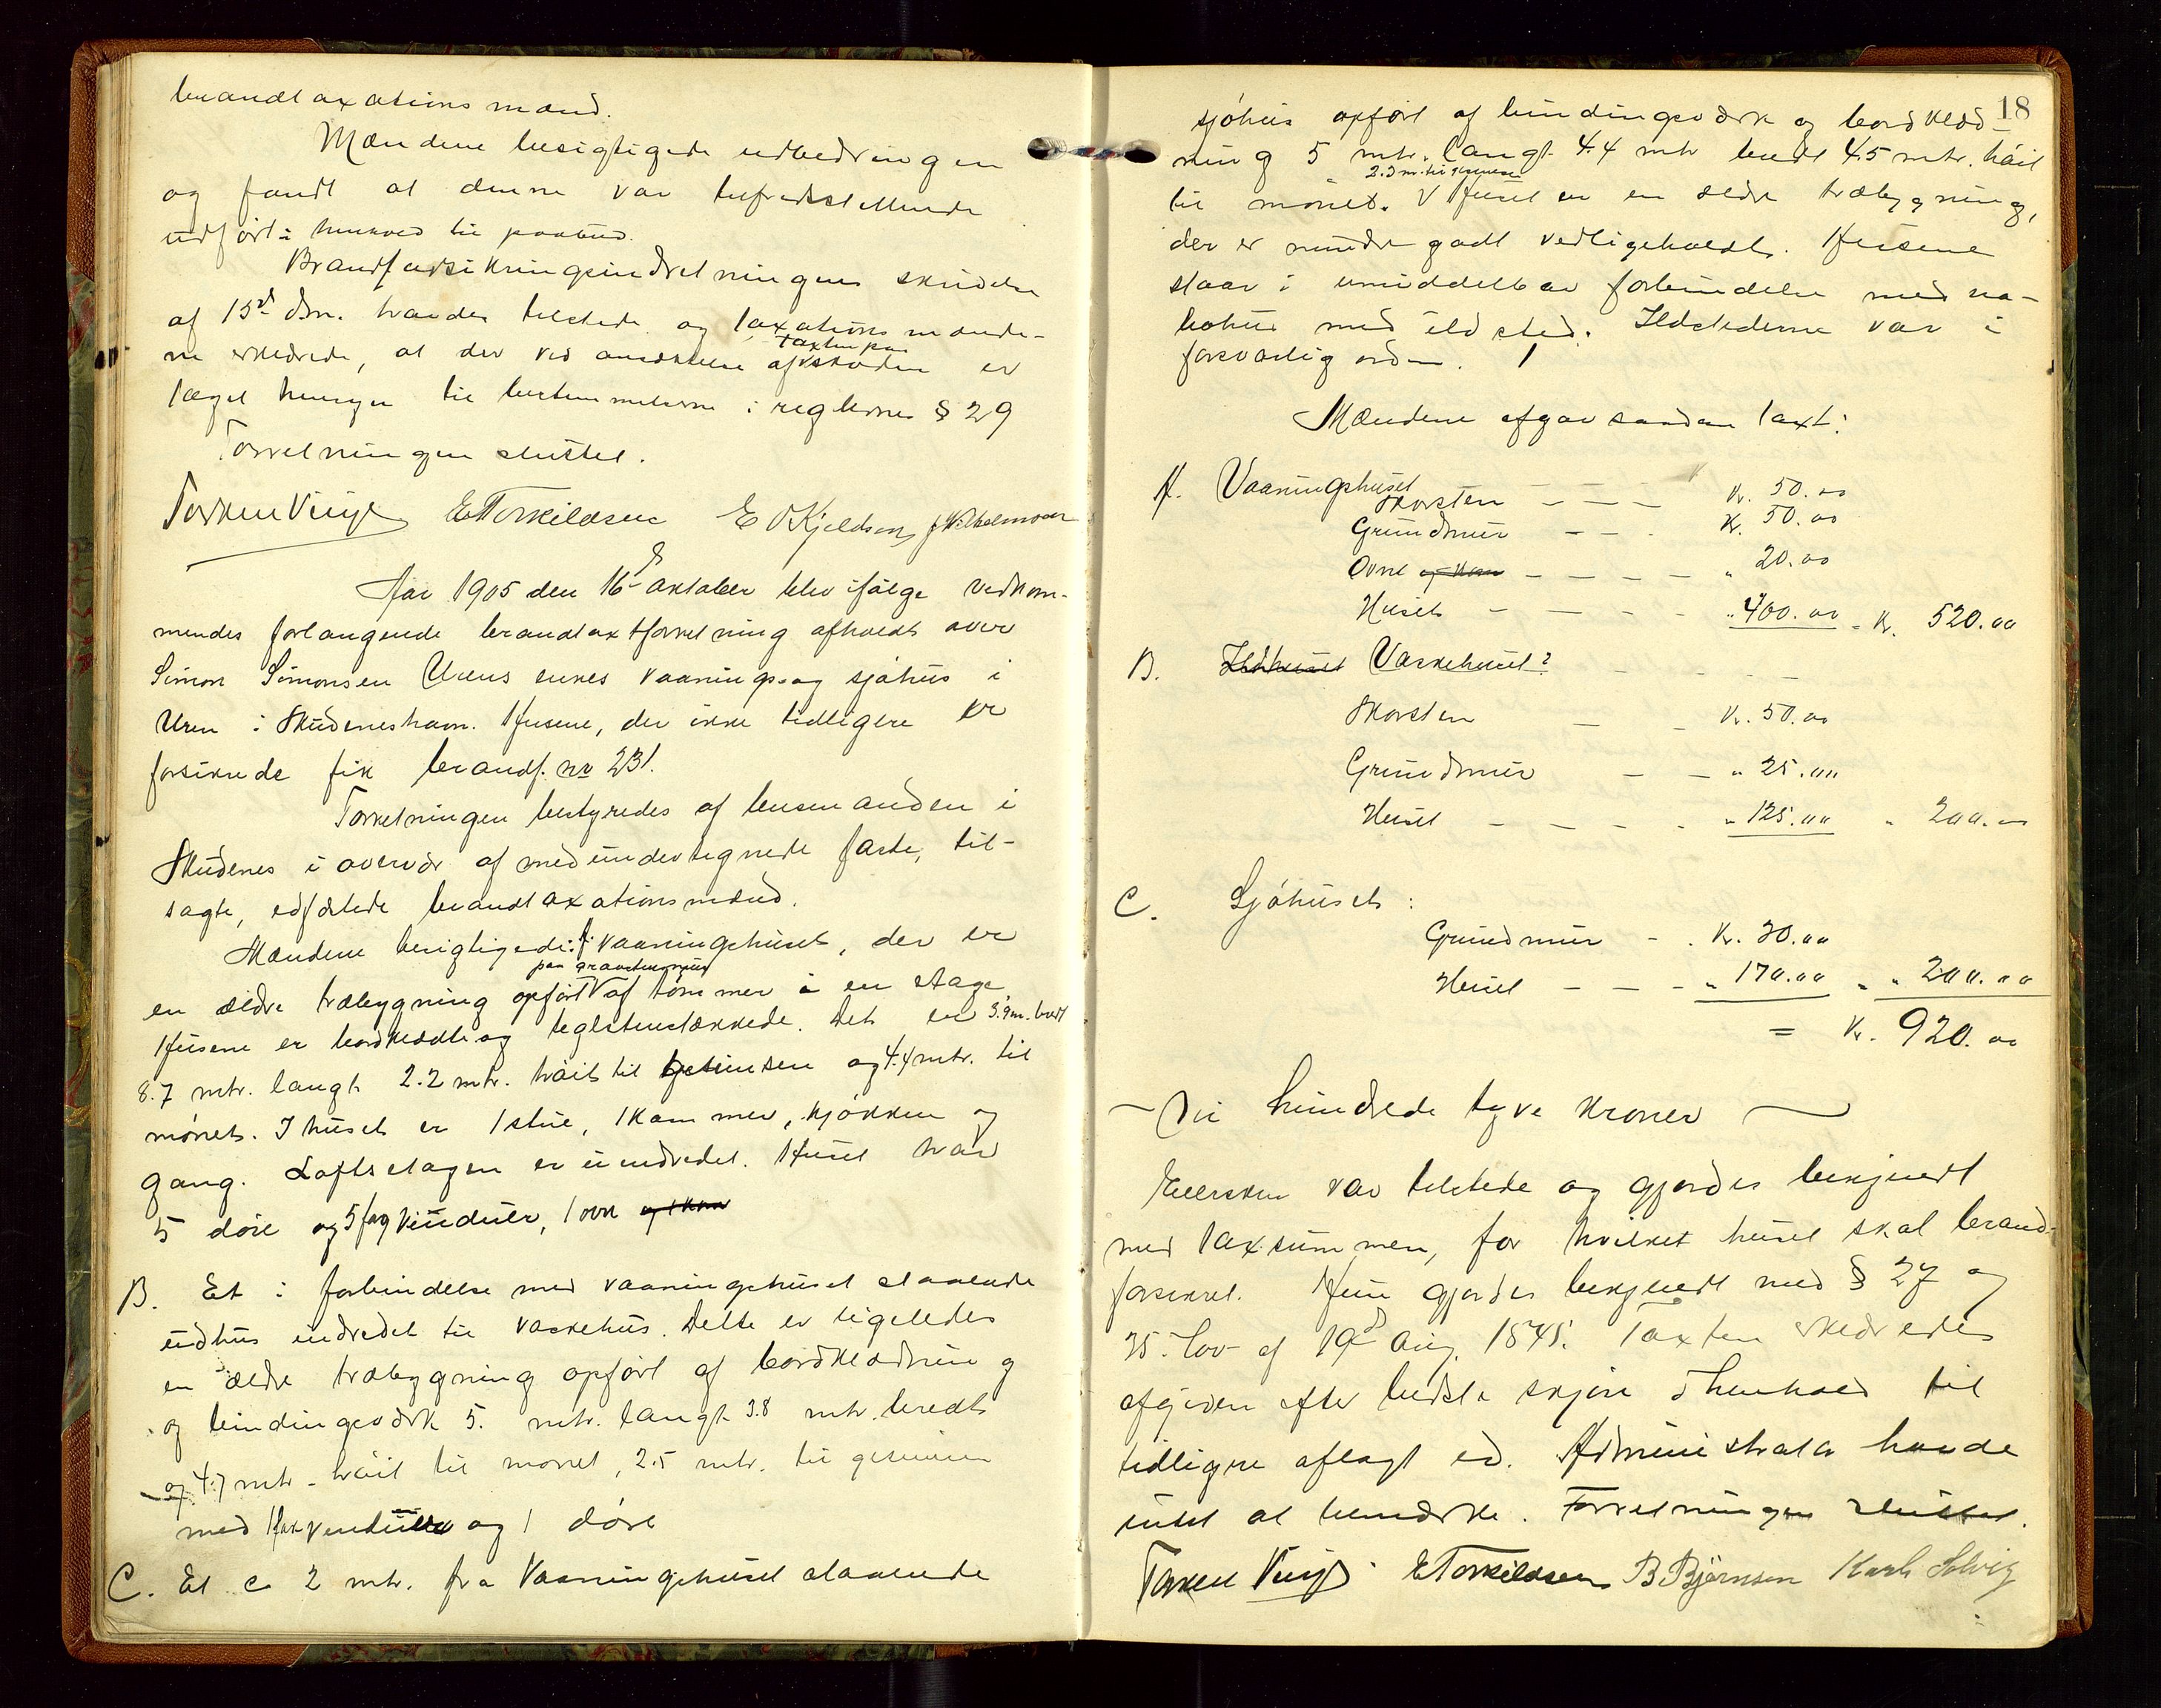 brandtaxationsmænd.
Mændene besigtigede udbedringen
og fandt at denne var tilfredsstillende
udført i henhold til paabud.
Brandforsikringsindretningens skrivelse
af 15de dsm. havdes tilstede og taxationsmænde-
ne erklærede, at der ved ansættelse af taxten paa skaden er
taget hensyn til bestemmelserne i reglernes § 29
Forretningen sluttet.
Torkell Vinje ETorkildsen E OKjeldsen J Wilhelmsen
Aar 1905 den 16de oktober blev ifølge vedkom-
mendes forlangende brandtaxtforretning afholdt over
Simon Simonsen Urens enkes vaanings- og sjøhus i
Uren i Skudeneshavn. Husene, der ikke tidligere er
forsikrede fik brandf. no 231.
Forretningen bestyredes af lensmanden i
Skudenes i overvær af medundertegnede faste, til-
sagte, edfæstede brandtaxationsmænd.
Mændene besigtigede: A: vaaningshuset, der er
en ældre træbygning opført paa graastensmur af tømmer i en etage
Husene er bordklædte og teglstenstækkede. Det er 5.9m. bredt
8.7 mtr. langt 2.2 mtr. høit til gesimsen og 4.4 mtr. til
mønet. I huset er 1 stue, 1 kammer, kjøkken og
gang. Loftsetagen er uindredet. Huset har
5 døre og 5 fag vinduer, 1 ovn
B. Et i forbindelse med vaaningshuset staaende
udhus indredet til vaskehus. Dette er ligeledes
en ældre træbygning opført af bordklædning
og bindingsværk 5. mtr. langt 3.8 mtr. bredt
og 4.7 mtr. høit til mønet, 2.5 mtr. til gesimsen
med 1 fax vinduer og 1 døre
C. Et ca 2 mtr. fra Vaaningshuset staaende
18
sjøhus opført af bindingsværk og bordklæd-
ning 5 mtr. langt 4.4 mtr bredt 4.5 mtr. høit
til mønet. 2.3 m. til gesimsen Huset er en ældre træbygning,
der er mindre godt vedligeholdt. Husene
staar i umiddelbar forbindelse med na-
bohus med ildsted. Ildstederne var i
forsvarlig orden.
Mændene afgav saadan taxt:
A. Vaaningshuset
Skorsten - - - Kr. 50.00
Grundmur - - - Kr. 50.00
Ovne - - - - " 20.00
Huset - - - - " 400.00 - Kr. 520.00
B. Vaskehuset:
Skorsten - - Kr. 50.00
Grundmur - - " 25.00
Huset - - - - " 125.00 " 200.00
C. Sjøhuset:
Grundmur - - Kr. 30.00
Huset - - - " 170.00 - " 200.00
= Kr. 920.00
- Ni hundrede tyve kroner -
Eiersken var tilstede og gjordes bekjendt
med taxsummen, for hvilket huset skal brand-
forsikret. Hun gjordes bekjendt med § 27 og
35. Lov af 19de Aug. 1845. Taxten erklæredes
afgiven efter bedste skjøn i henhold til
tidligere aflagt ed. Administrator havde
intet at bemærke. Forretningen sluttet.
Torkell Vinje ETorkildsen B Bjørnsen Karl Solvig